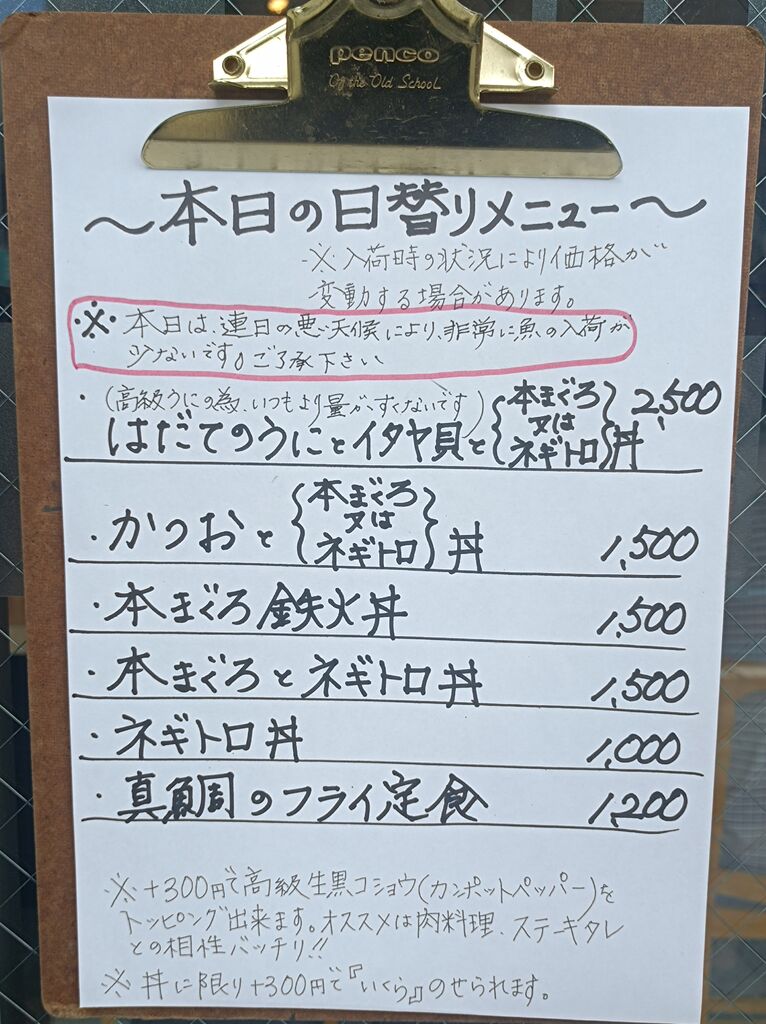 penco
Of the Old School
～本日の日替りメニュー～
※入荷時の状況により価格が
変動する場合があります。
※本日は、連日の悪天候により、非常に魚の入荷が
少ないです。ご了承下さい
・(高級うにの為、いつもより量がすくないです)
はだてのうにとイタヤ貝と{本まぐろ又はネギトロ}丼 2,500
・かつおと{本まぐろ又はネギトロ}丼 1,500
・本まぐろ鉄火丼 1,500
・本まぐろとネギトロ丼 1,500
・ネギトロ丼 1,000
・真鯛のフライ定食 1,200
※+300円で高級生黒コショウ(カンポットペッパー)を
トッピング出来ます。オススメは肉料理、ステーキタレ
との相性バッチリ!!
※丼に限り+300円で『いくら』のせられます。